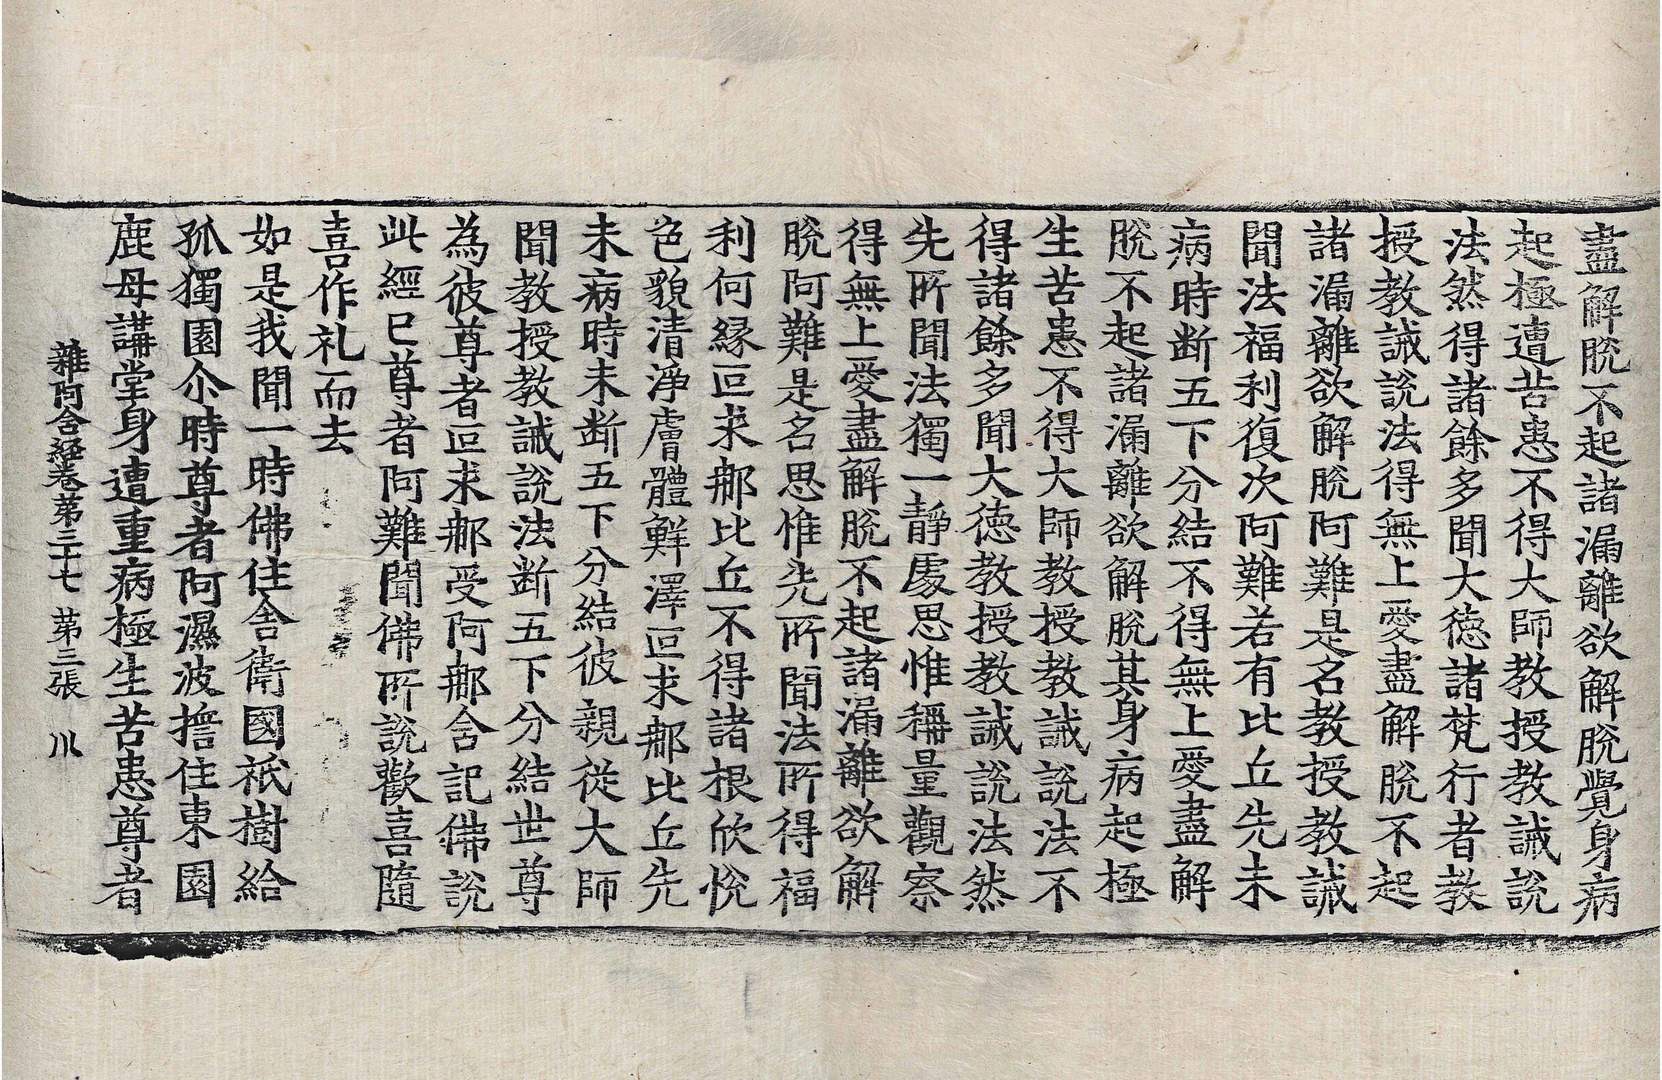 盡解脫不起諸漏離欲解脫覺身病
起極遭苦患不得大師教授教誡說
法然得諸餘多聞大德諸梵行者教
授教誡說法得無上愛盡解脫不起
諸漏離欲解脫阿難是名教授教誡
聞法福利復次阿難若有比丘先未
病時断五下分結不得無上愛盡解
脫不起諸漏離欲解脫其身病起極
生苦患不得大師教授教誡說法不
得諸餘多聞大德教授教誡說法然
先所聞法獨一靜處思惟稱量觀察
得無上愛盡解脫不起諸漏離欲解
脫阿難是名思惟先所聞法所得福
利何縁叵求那比丘不得諸根欣悅
色貌清淨膚體鮮澤叵求那比丘先
未病時未断五下分結彼親從大師
聞教授教誡說法断五下分結世尊
為彼尊者叵求那受阿那含記佛說
此經已尊者阿難聞佛所說歡喜隨
喜作礼而去
如是我聞一時佛住舍衛國祇樹給
孤獨園尒時尊者阿濕波擔住東園
鹿母講堂身遭重病極生苦患尊者
雜阿含経卷第三十七 第三張 川